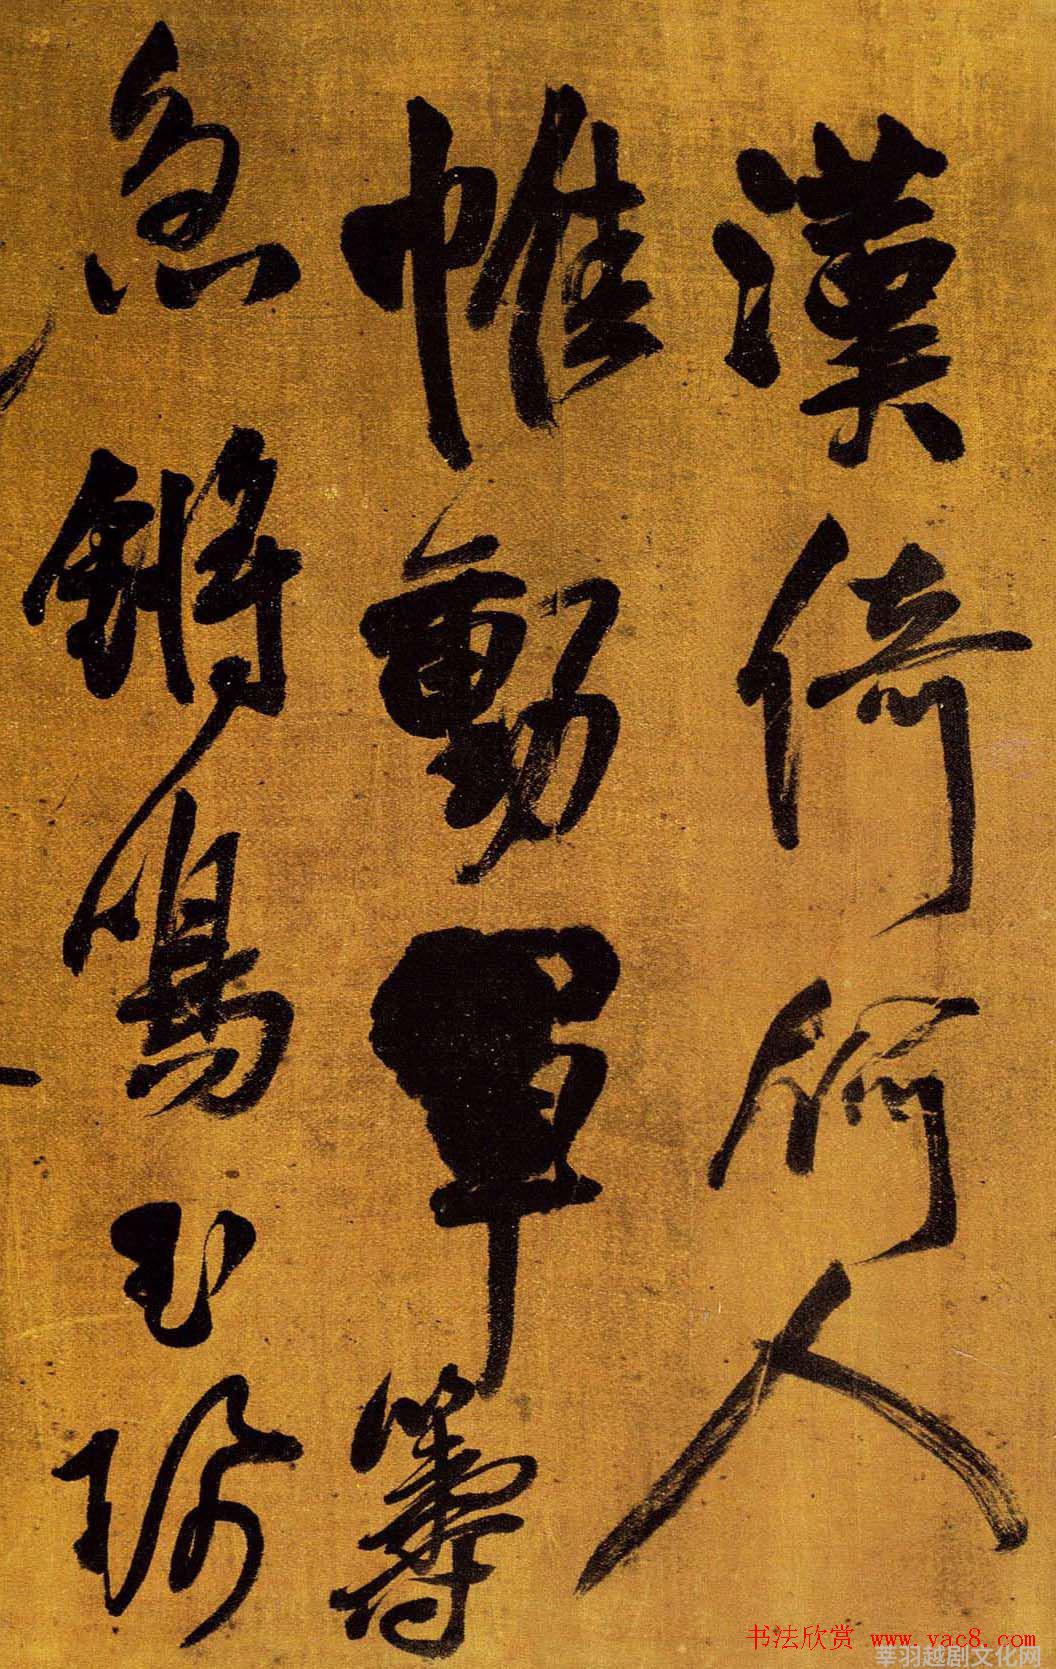 漢倚何人
帷動軍籌
急鏘鳴玉
书法欣赏 www.yac8.com
莘羽越剧文化网